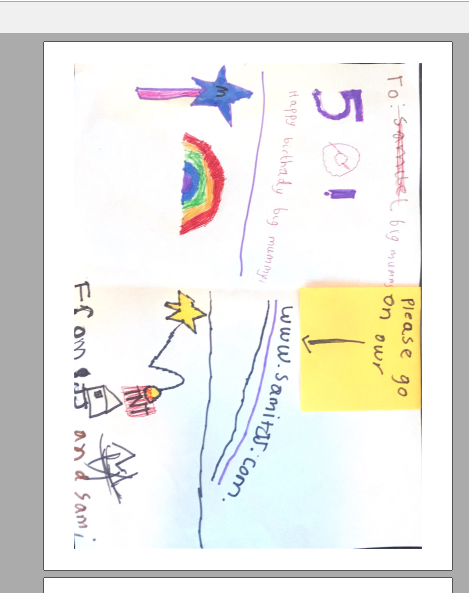 To: big mummy
5
Happy birthady big mummy.
m
Please go
on our
www.samitzv.com.
TNT
From and sami